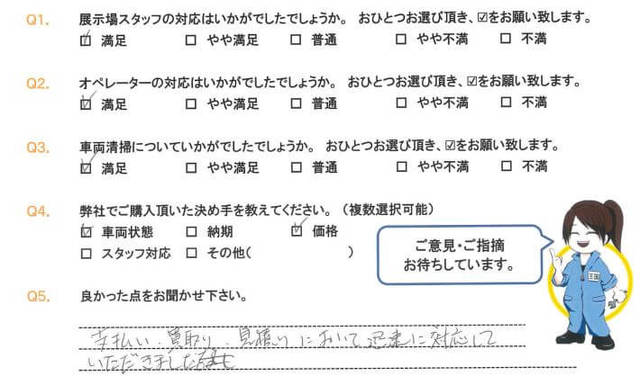 Q1. 展示場スタッフの対応はいかがでしたでしょうか。 おひとつお選び頂き、☑をお願い致します。
☑ 満足 □ やや満足 □ 普通 □ やや不満 □ 不満
Q2. オペレーターの対応はいかがでしたでしょうか。 おひとつお選び頂き、☑をお願い致します。
☑ 満足 □ やや満足 □ 普通 □ やや不満 □ 不満
Q3. 車両清掃についていかがでしたでしょうか。 おひとつお選び頂き、☑をお願い致します。
☑ 満足 □ やや満足 □ 普通 □ やや不満 □ 不満
Q4. 弊社でご購入頂いた決め手を教えてください。（複数選択可能）
☑ 車両状態 □ 納期 ☑ 価格
□ スタッフ対応 □ その他( )
ご意見・ご指摘
お待ちしています。
Q5. 良かった点をお聞かせ下さい。
支払い・買取り・見積りにおいて迅速に対応して
いただきました